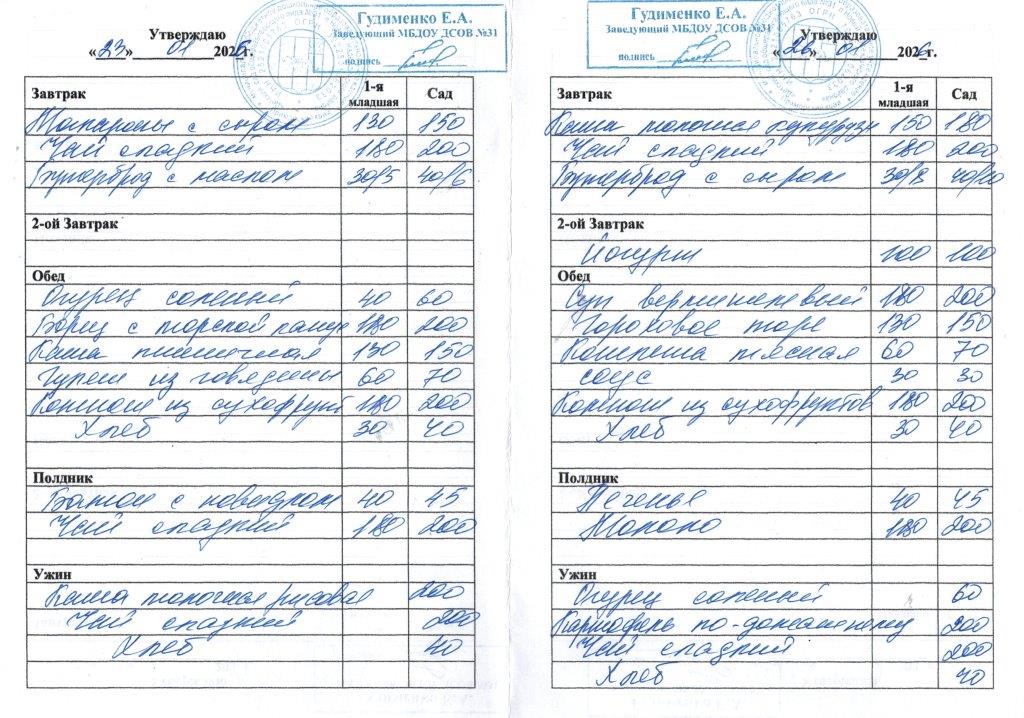 Гудименко Е.А.
Заведующий МБДОУ ДСОВ №31
подпись
Утверждаю
«23» 01 2026г.
Завтрак 1-я младшая Сад
Макароны с сыром 130 150
Чай сладкий 180 200
Бутерброд с маслом 30/5 40/6
2-ой Завтрак
Обед
Огурец соленый 40 60
Борщ с морской капус 180 200
Каша пшеничная 130 150
Гуляш из говядины 60 70
Компот из сухофрукт 180 200
Хлеб 30 40
Полдник
Батон с повидлом 40 45
Чай сладкий 180 200
Ужин
Каша молочная рисовая 200
Чай сладкий 200
Хлеб 40
Гудименко Е.А.
Заведующий МБДОУ ДСОВ №31
подпись
Утверждаю
«26» 01 2026г.
Завтрак 1-я младшая Сад
Каша молочная кукурузн 150 180
Чай сладкий 180 200
Бутерброд с сыром 30/8 40/10
2-ой Завтрак
Йогурт 100 100
Обед
Суп вермишелевый 180 200
Гороховое пюре 130 150
Котлета мясная 60 70
соус 30 30
Компот из сухофруктов 180 200
Хлеб 30 40
Полдник
Печенье 40 45
Молоко 180 200
Ужин
Огурец соленый 60
Картофель по-домашнему 200
Чай сладкий 200
Хлеб 40